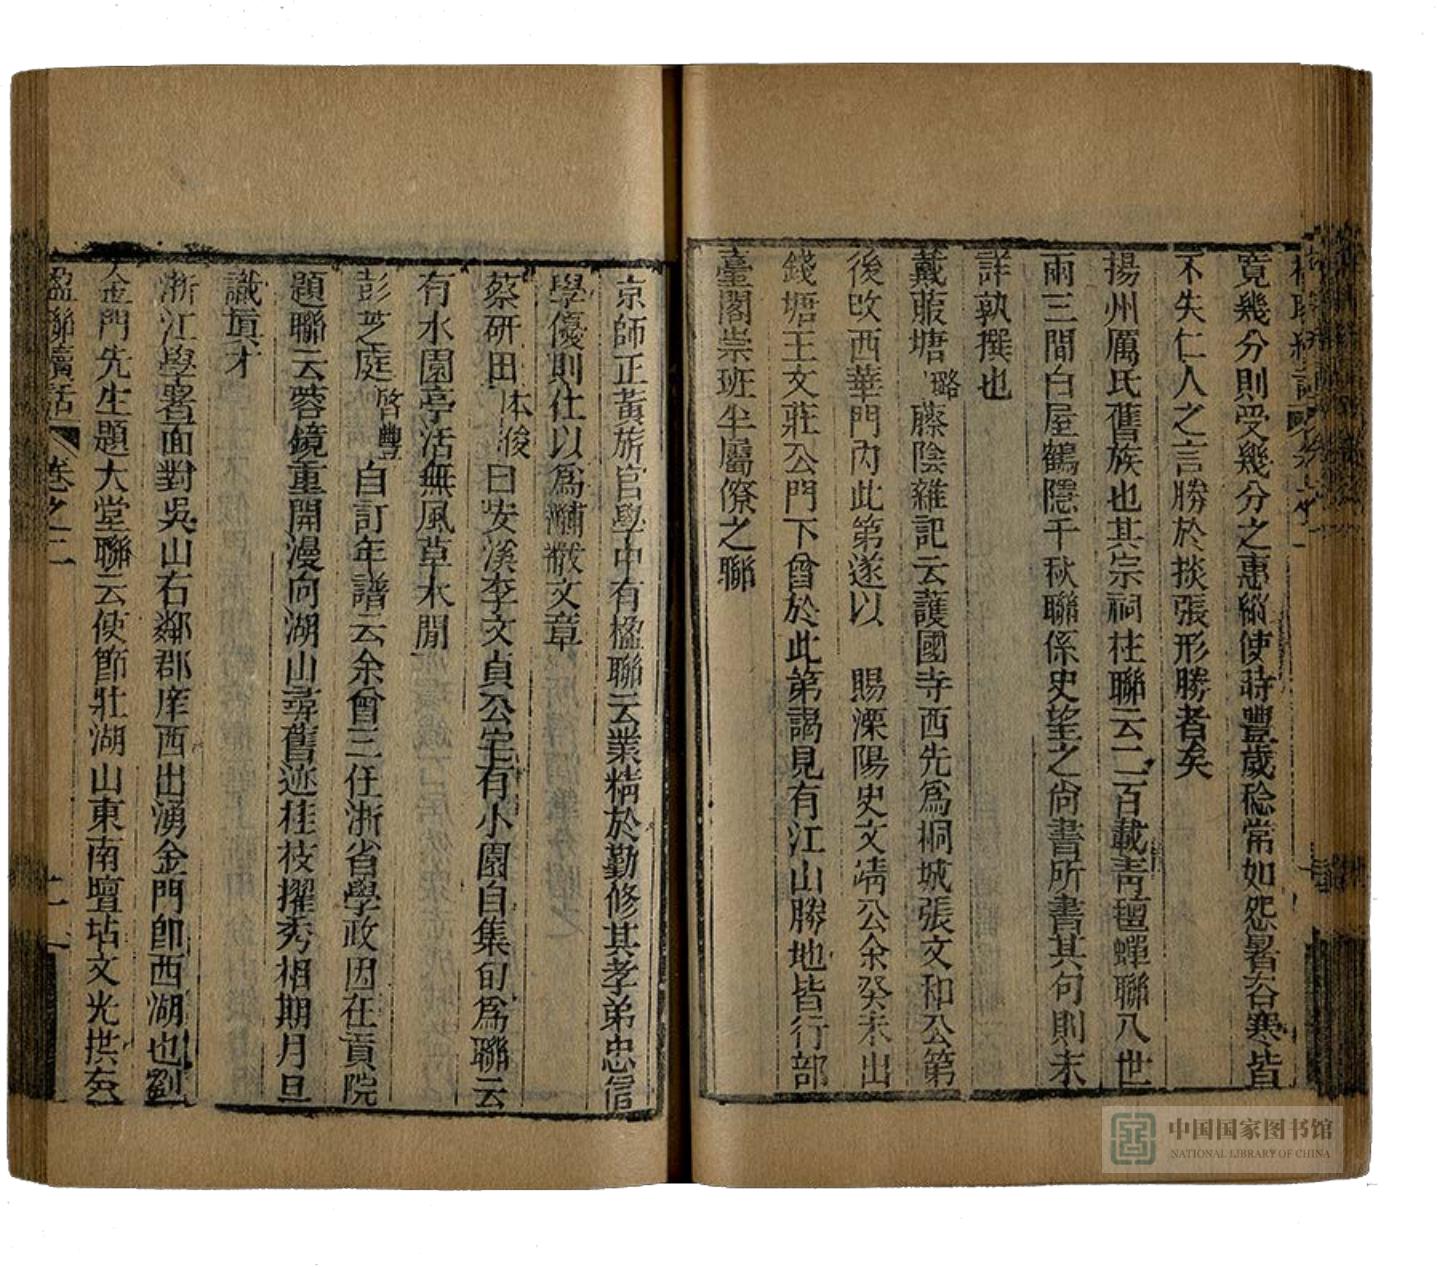 寬幾分則受幾分之惠縱使時豐歲稔常如怨暑咨寒皆
不失仁人之言勝於掞張形勝者矣
揚州厲氏舊族也其宗祠柱聯云二百載靑氊蟬聯八世
兩三間白屋鶴隱千秋聯係史望之尙書所書其句則未
詳孰撰也
戴菔塘璐藤陰雜記云護國寺西先爲桐城張文和公第
後改西華門內此第遂以　賜溧陽史文靖公余癸未出
錢塘王文莊公門下曾於此第謁見有江山勝地皆行部
臺閣崇班半屬僚之聯
京師正黃旂官學中有楹聯云業精於勤修其孝弟忠信
學優則仕以爲黼黻文章
蔡研田本俊曰安溪李文貞公宅有小園自集句爲聯云
有水園亭活無風草木閒
彭芝庭啓豐自訂年譜云余曾三任浙省學政因在貢院
題聯云蓉鏡重開漫向湖山尋舊迹桂枝擢秀相期月旦
識眞才
浙江學署面對吳山右鄰郡庠西出湧金門卽西湖也劉
金門先生題大堂聯云使節壯湖山東南壇坫文光拱奎
楹聯續話　卷之二
中国国家图书馆
NATIONAL LIBRARY OF CHINA